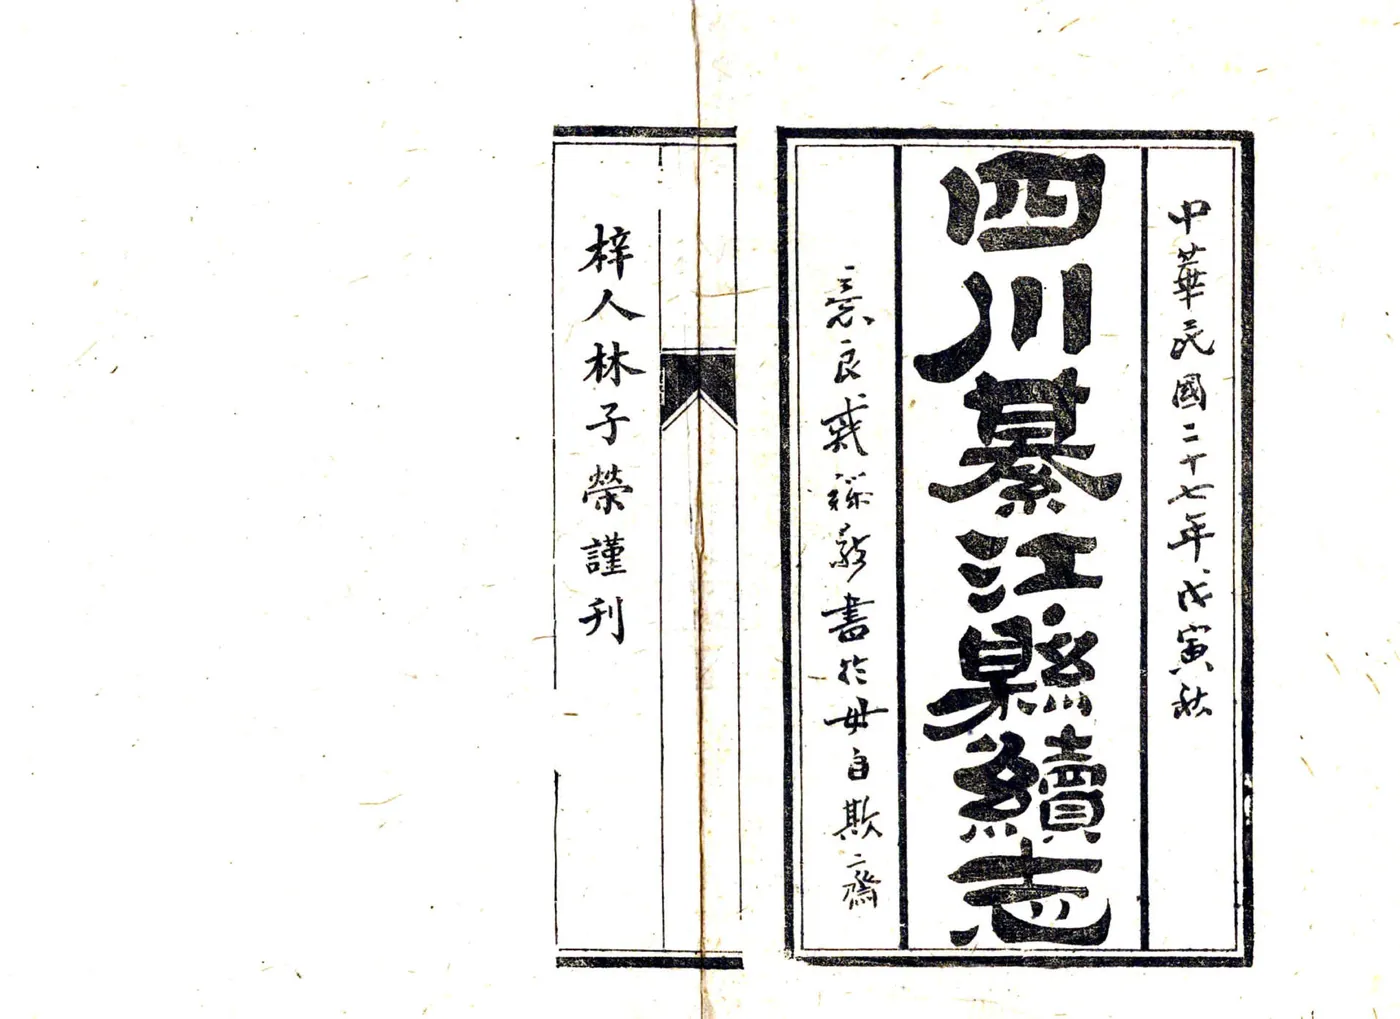 中華民國二十七年戊寅秋
四川綦江縣續志
良書於毋自欺齋
梓人林子榮謹刊